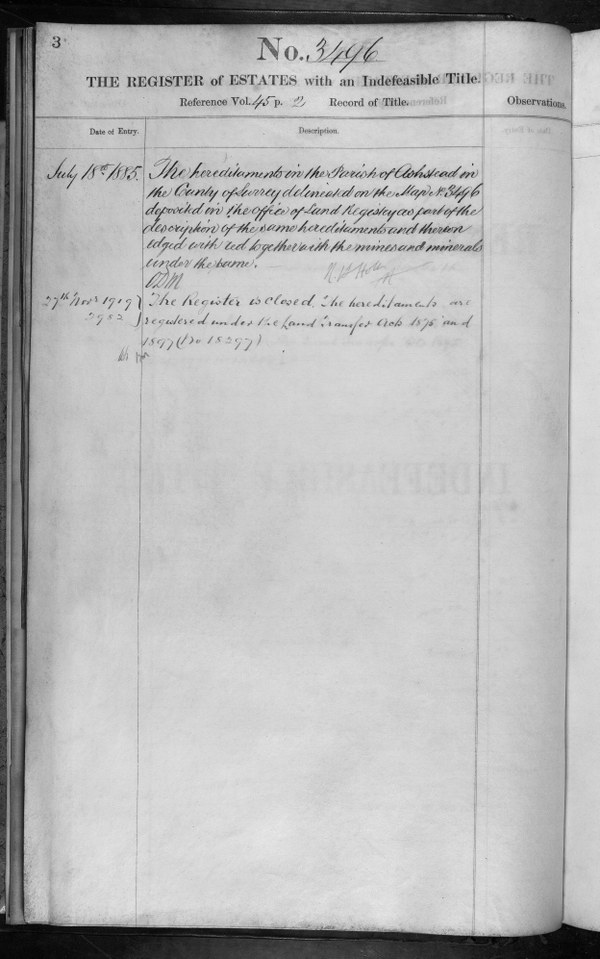 3
No. 3496
THE REGISTER of ESTATES with an Indefeasible Title.
Reference Vol. 45 p. 2 Record of Title.
Observations.
Date of Entry.
Description.
July 18th 1885.
The hereditaments in the Parish of Ashstead in
the County of Surrey delineated on the Map No. 3496
deposited in the office of Land Registry as part of the
description of the same hereditaments and thereon
edged with red together with the mines and minerals
under the same.
27th Novr 1919
2982
The Register is closed. The hereditaments are
registered under the Land Transfer Acts 1875 and
1897 (No 18297)